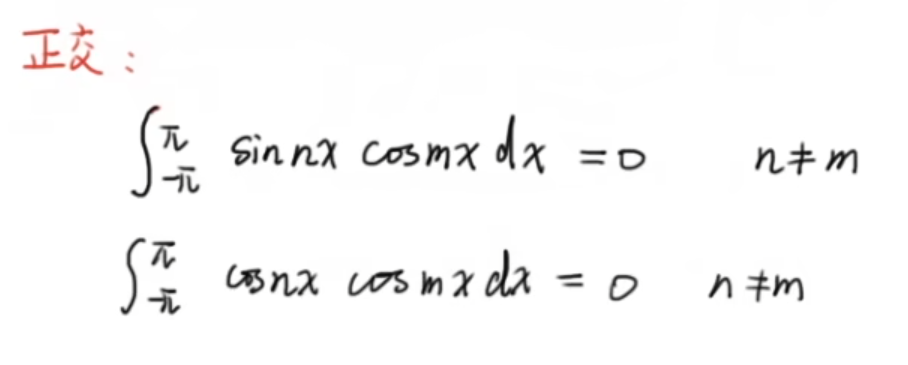 正交：
∫_{-π}^{π} sin nx cos mx dx = 0 n ≠ m
∫_{-π}^{π} cos nx cos mx dx = 0 n ≠ m